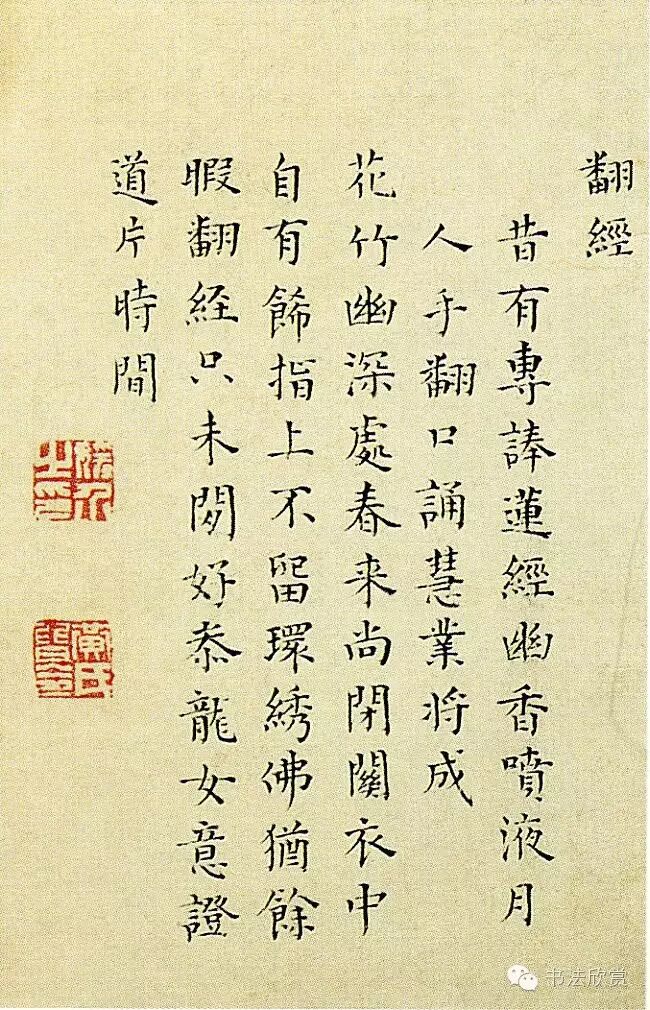 翻經
昔有專諱蓮經幽香噴液月
人手翻口誦慧業将成
花竹幽深處春来尚閉關衣中
自有餙指上不留環綉佛猶餘
暇翻経只未閑好泰龍女意證
道片時間
书法欣赏